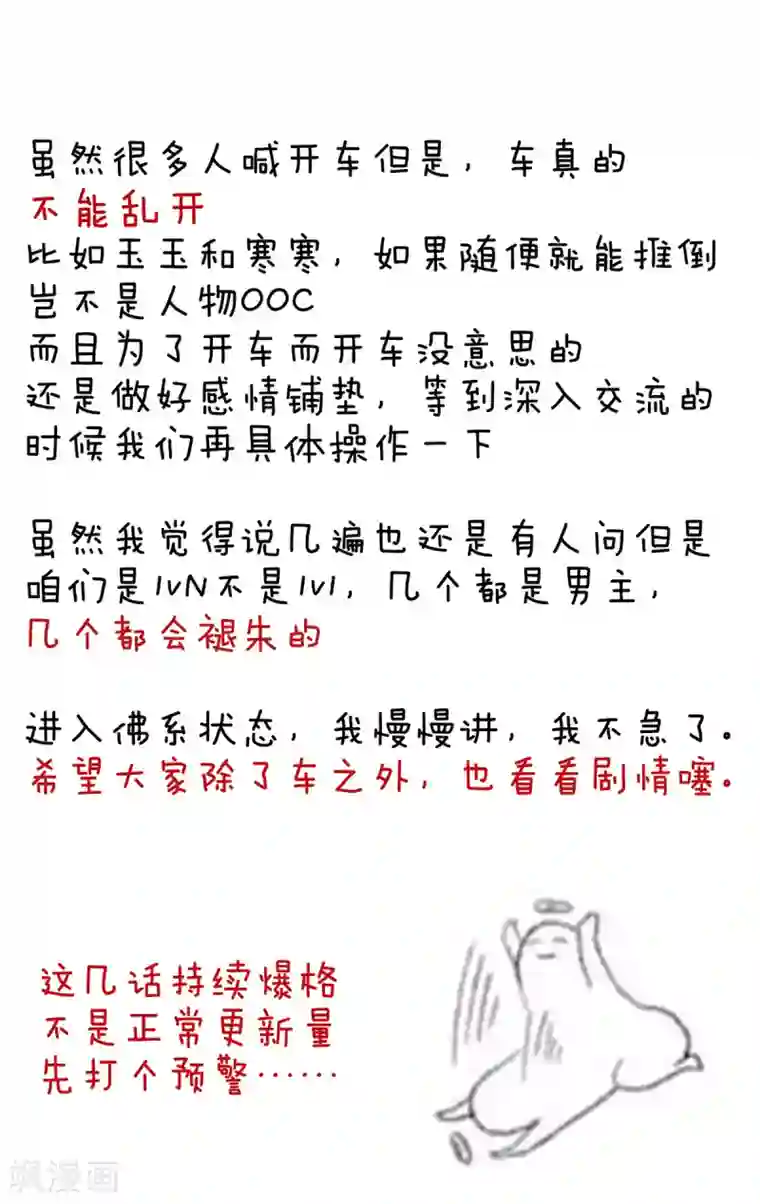 虽然很多人喊开车但是，车真的
不能乱开
比如玉玉和寒寒，如果随便就能推倒
岂不是人物OOC
而且为了开车而开车没意思的
还是做好感情铺垫，等到深入交流的
时候我们再具体操作一下
虽然我觉得说几遍也还是有人问但是
咱们是1vN不是1v1，几个都是男主，
几个都会褪朱的
进入佛系状态，我慢慢讲，我不急了。
希望大家除了车之外，也看看剧情噻。
这几话持续爆格
不是正常更新量
先打个预警……
飒漫画